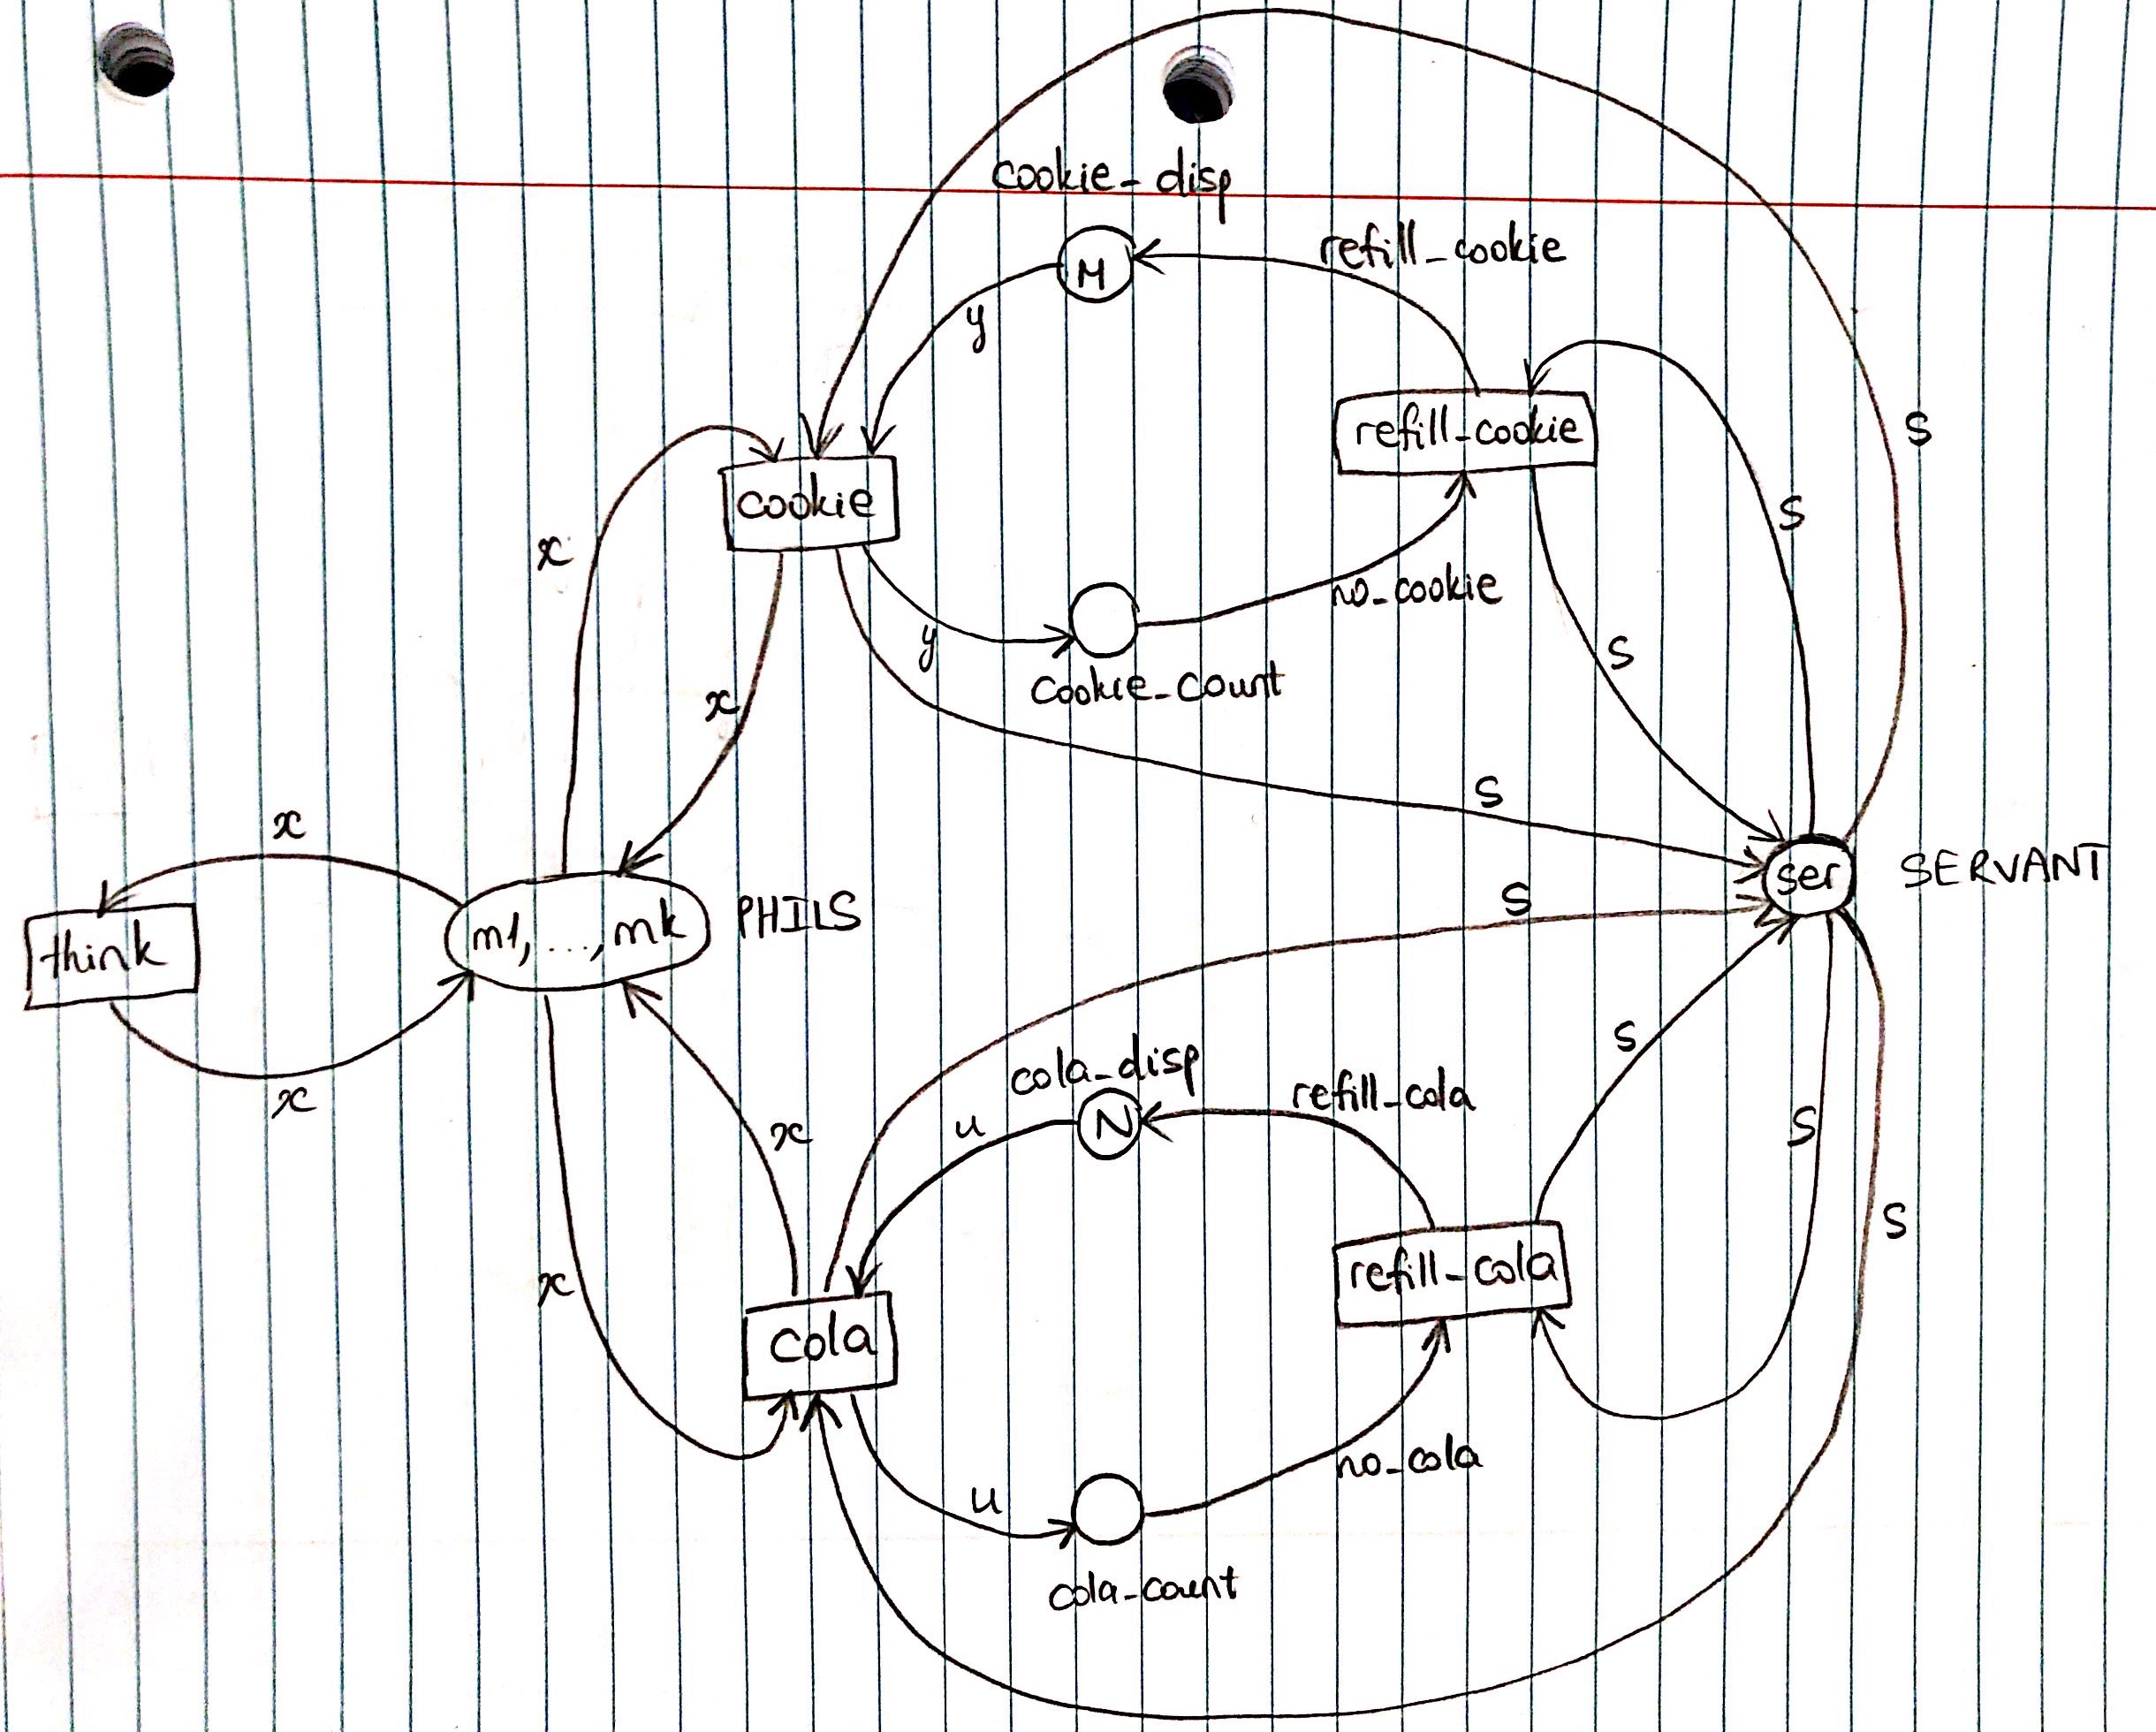 cookie_disp
refill_cookie
M
y
refill_cookie
s
cookie
s
x
no_cookie
y
s
cookie_count
x
s
x
ser SERVANT
s
m1, ..., mk PHILS
think
s
cola_disp
refill_cola
x
N
u
x
s
s
refill_cola
x
cola
no_cola
u
cola_count